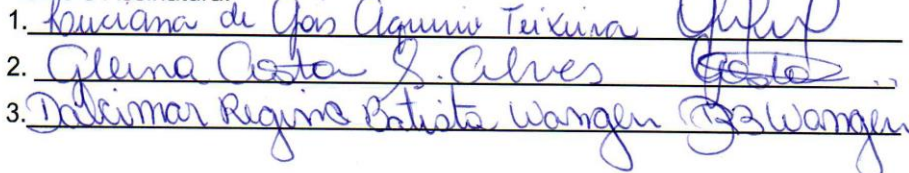 1. Luciana de Goís Aquino Teixeira
2. Gleina Costa S. Alves GCosta
3. Dalcimar Regina Batista Wangen RBWangen